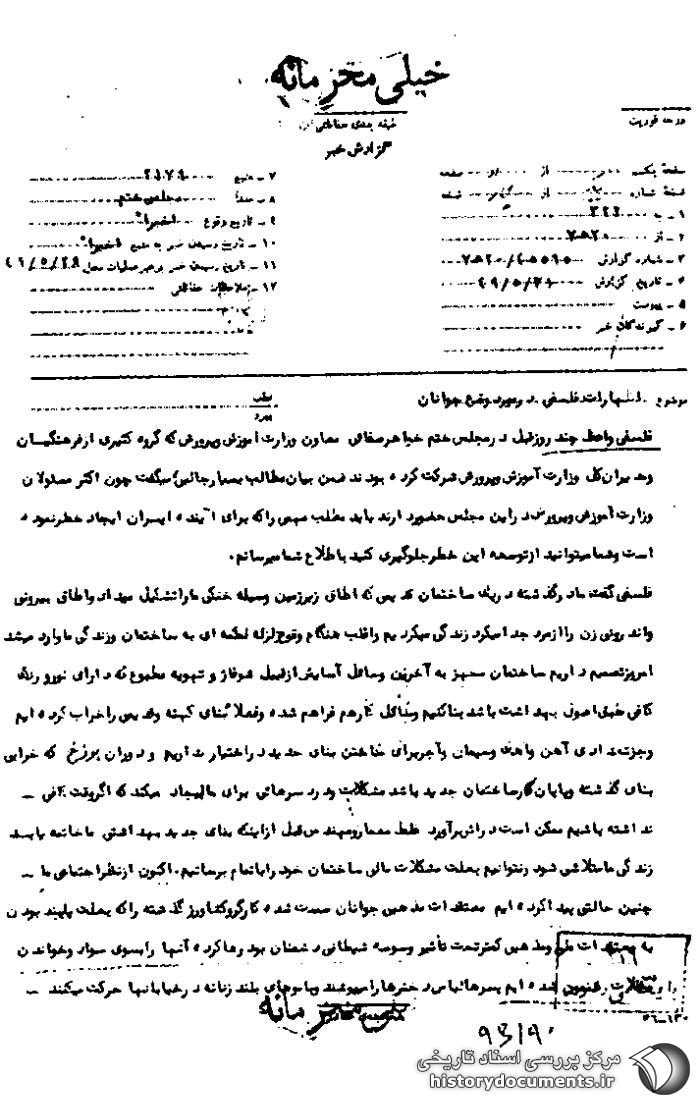 خیلی محرمانه
طبقه بندی حفاظتی
درجه فوریت
گزارش خبر
صفحه یکم از صفحه
نسخه شماره از نسخه
۱ - به ۳۲۲
۲ - از
۳ - شماره گزارش
۴ - تاریخ گزارش
۵ - پیوست
۶ - گیرندگان خبر
۷ - منبع
۸ - منشأ مجلس ختم
۹ - تاریخ وقوع اخیراً
۱۰ - تاریخ رسیدن خبر به منبع اخیراً
۱۱ - تاریخ رسیدن خبر به رهبر عملیات محل
۱۲ - ملاحظات حفاظتی
موضوع اظهارات فلسفی در مورد وضع جوانان
فلسفی واعظ چند روز قبل در مجلس ختم خواهر صفائی معاون وزارت آموزش و پرورش که گروه کثیری از فرهنگیان
و مدیران کل وزارت آموزش و پرورش شرکت کرده بودند ضمن بیان مطالب بسیار جالبی میگفت چون اکثر مسئولان
وزارت آموزش و پرورش در این مجلس حضور دارند باید مطلب مهمی را که برای آینده ایران ایجاد خطر نموده
است و شما میتوانید از توسعه این خطر جلوگیری کنید باطلاع شما برسانم.
فلسفی گفت ما در گذشته در یک ساختمان قدیمی که اطاق زیرزمین وسیله خنکی ما را تشکیل میداد و اطاق بیرونی
و اندرونی زن را از مرد جدا میکرد زندگی میکردیم و اغلب هنگام وقوع زلزله لطمه ای به ساختمان و زندگی ما وارد میشد
امروز تصمیم داریم ساختمان مجهز به آخرین وسائل آسایش از قبیل شوفاژ و تهویه مطبوع که دارای نور و رنگ
کافی طبق اصول بهداشت باشد بنا کنیم وسائل کار هم فراهم شده و فعلاً بنای کهنه و قدیمی را خراب کرده ایم
و جز تعدادی آهن و سیمان و آجر برای ساختن بنای جدید در اختیار نداریم و دوران برزخ که خرابی
بنای گذشته و پایان کار ساختمان جدید باشد مشکلات و دردسرهائی برای ما ایجاد میکند که اگر وقت کافی -
نداشته باشیم ممکن است در اثر برآورد غلط معمار و مهندس قبل از اینکه بنای جدید بهداشتی ما خاتمه یابد
زندگی ما متلاشی شود و نتوانیم بعلت مشکلات مالی ساختمان خود را باتمام برسانیم. اکنون از نظر اجتماعی ما -
چنین حالتی پیدا کرده ایم معتقدات مذهبی جوانان سست شده کارگر و کشاورز گذشته را که بعلت پابند بودن
به معتقدات ملی و مذهبی کمتر تحت تأثیر وسوسه شیطانی دشمنان بود رها کرده آنها را بسوی سواد و خواندن
مقالات رهنمون شده ایم پسرها لباس دخترها را میپوشند و با موهای بلند زنانه در خیابانها حرکت میکنند -
خیلی محرمانه
۹۳/۹۰
مرکز بررسی اسناد تاریخی
historydocuments.ir